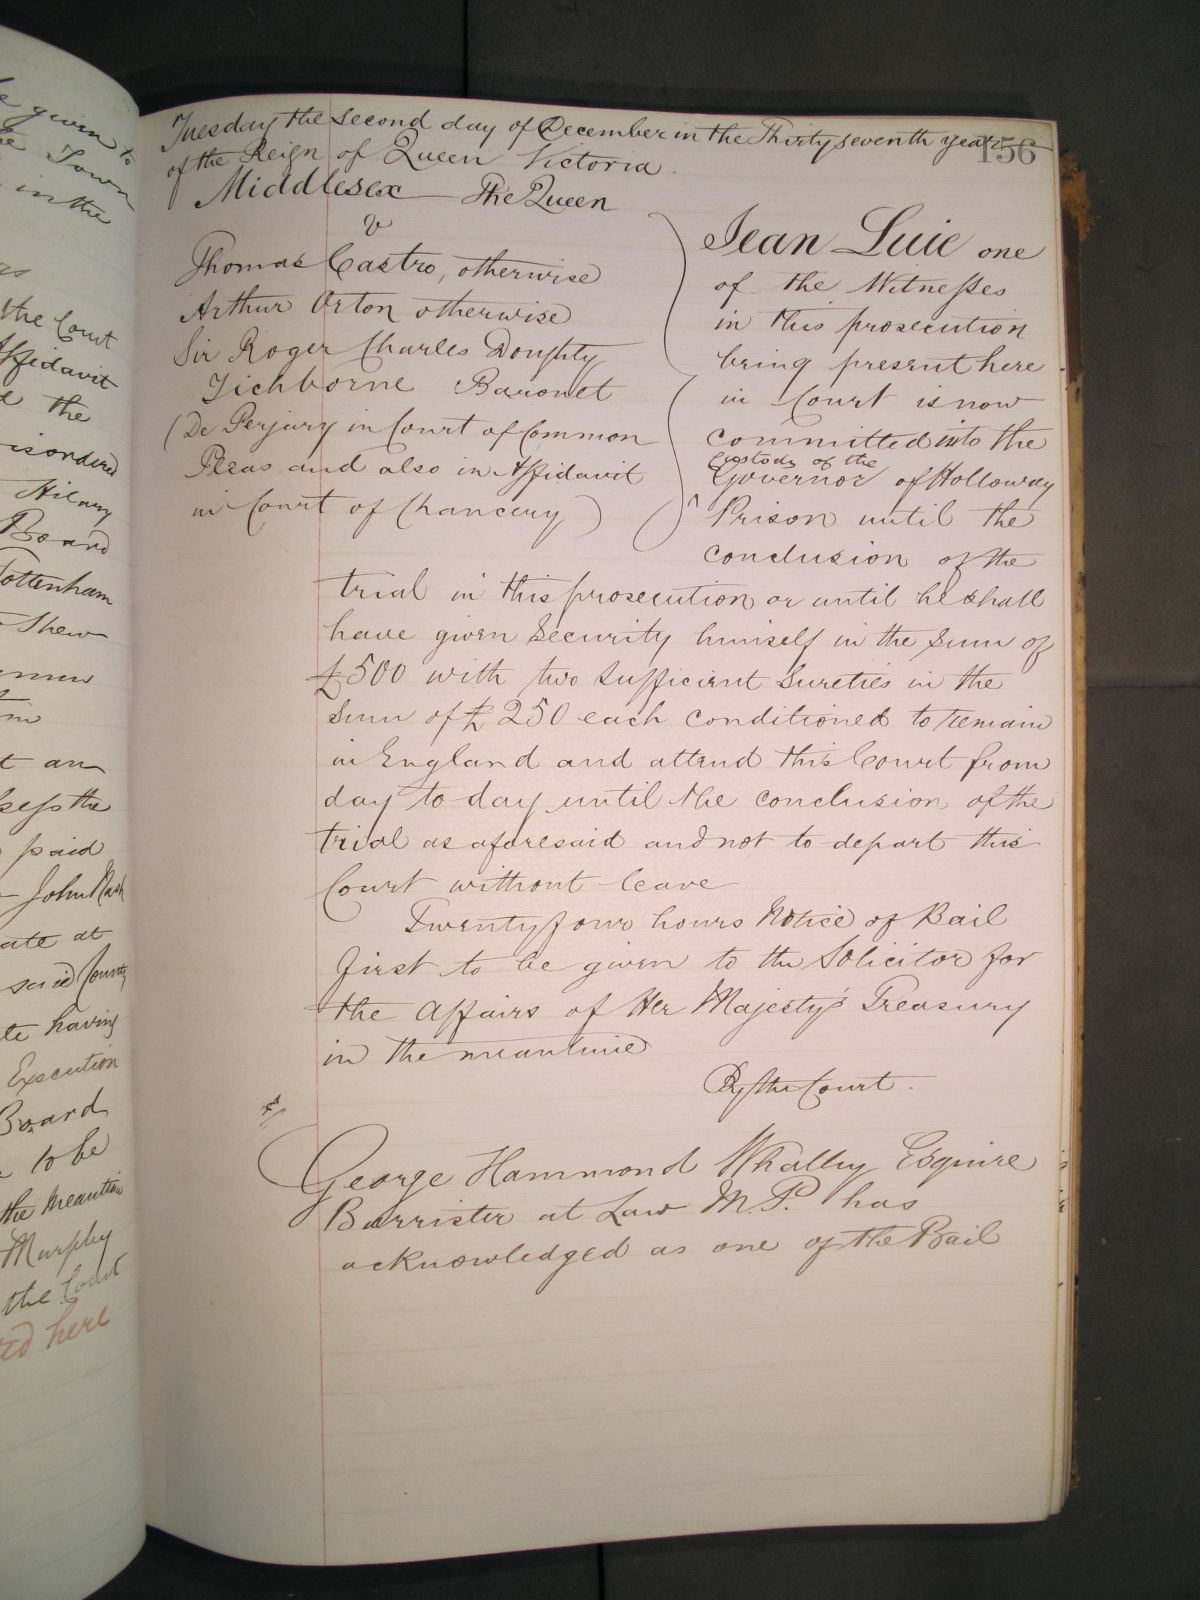 Tuesday the second day of December in the Thirty seventh year
156
of the Reign of Queen Victoria.
Middlesex The Queen
v
Thomas Castro, otherwise
Arthur Orton otherwise
Sir Roger Charles Doughty
Tichborne Baronet
(De Perjury in Court of Common
Pleas and also in Affidavit
in Court of Chancery)
Jean Luie one
of the Witnesses
in this prosecution
being present here
in Court is now
committed into the
custody of the
Governor of Holloway
Prison until the
conclusion of the
trial in this prosecution or until he shall
have given security himself in the sum of
£500 with two sufficient Sureties in the
sum of £250 each conditioned to remain
in England and attend this Court from
day to day until the conclusion of the
trial as aforesaid and not to depart this
Court without leave
Twenty four hours Notice of Bail
first to be given to the Solicitor for
the Affairs of Her Majesty's Treasury
in the meantime
By the Court.
George Hammond Whalley Esquire
Barrister at Law M.P. has
acknowledged as one of the Bail
given to
Town
in the
the Court
Affidavit
the
Hilary
Board
Tottenham
Shew
an
the
paid
John Nash
at
said County
having
Execution
Board
to be
the meantime
Murphy
the Court
here